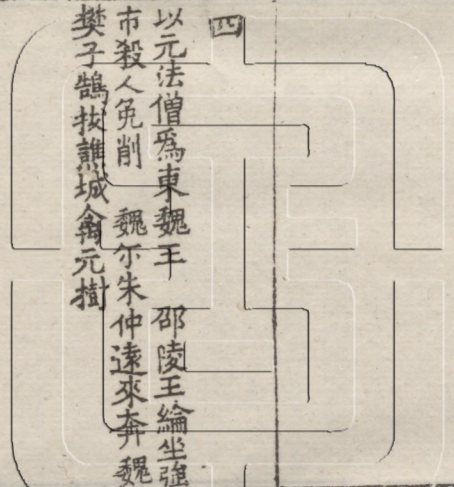 四
以元法僧爲東魏王　邵陵王綸坐強
市殺人免削　魏尒朱仲遠來奔　魏
樊子鵠拔譙城禽元樹